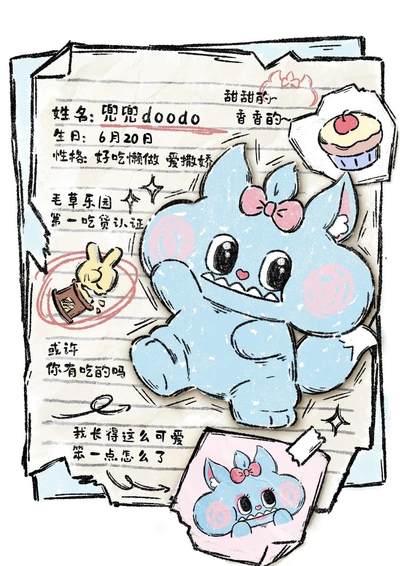 甜甜的~
香香的~
姓名：兜兜doodo
生日：6月20日
性格：好吃懒做 爱撒娇
毛草乐园
第一吃货认证
或许
你有吃的吗
我长得这么可爱
笨一点怎么了